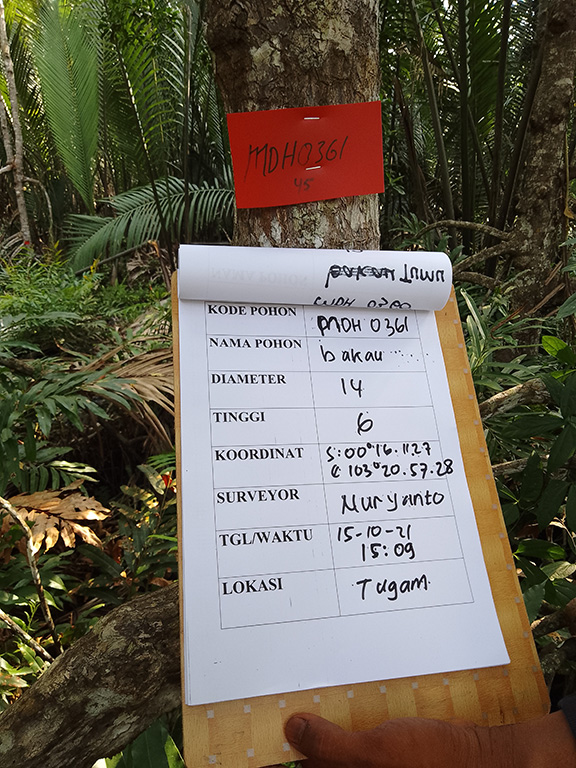 MDH 0361
45
KODE POHON MDH 0361
NAMA POHON bakau
DIAMETER 14
TINGGI 6
KOORDINAT S:00°16.11.27
E 103°20.57.28
SURVEYOR Nuryanto
TGL/WAKTU 15-10-21
15:09
LOKASI Tugam